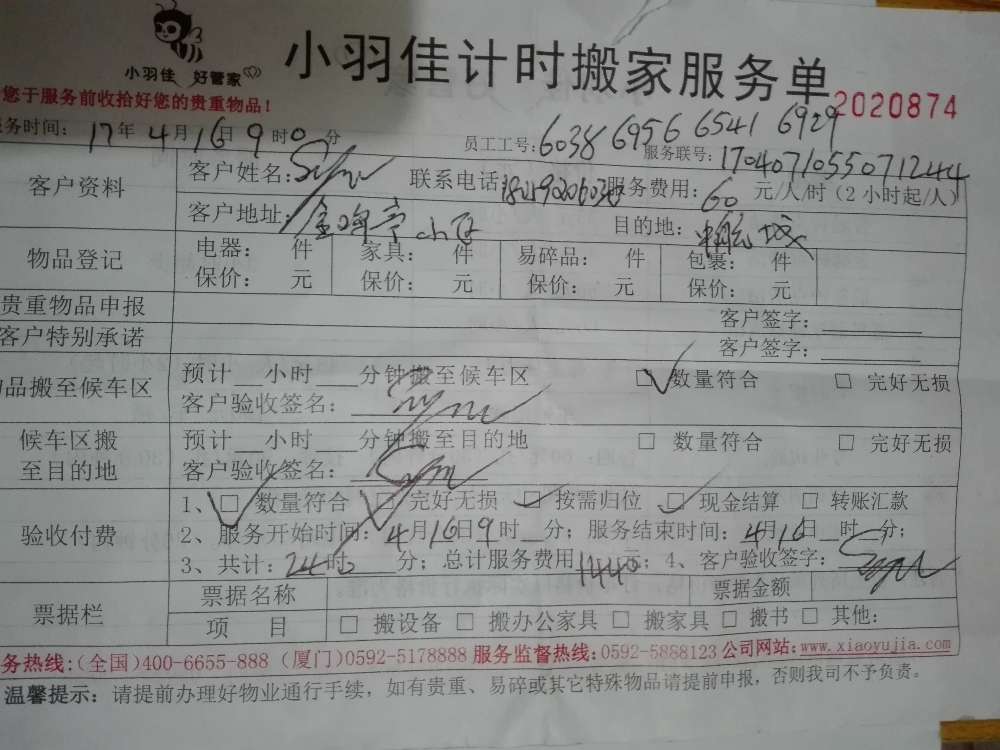 小羽佳 好管家
小羽佳计时搬家服务单
您于服务前收拾好您的贵重物品！
2020874
务时间：17年4月16日9时0分
员工工号：6038 6956 6541 6929
服务联号：17040710550712444
客户资料
客户姓名： 联系电话： 服务费用：60元/人/时（2小时起/人）
客户地址： 小区 目的地： 城
物品登记
电器： 件 家具： 件 易碎品： 件 包裹： 件
保价： 元 保价： 元 保价： 元 保价： 元
贵重物品申报 客户签字：
客户特别承诺 客户签字：
品搬至候车区
预计__小时___分钟搬至候车区 ☑ 数量符合 □ 完好无损
客户验收签名：
候车区搬
至目的地
预计__小时___分钟搬至目的地 □ 数量符合 □ 完好无损
客户验收签名：
验收付费
1、☑ 数量符合 ☑ 完好无损 ☑ 按需归位 ☑ 现金结算 □ 转账汇款
2、服务开始时间：4月16日9时__分；服务结束时间：4月16日__时__分；
3、共计：24时__分；总计服务费用1440元；4、客户验收签字：
票据栏
票据名称 票据金额
项 目 □ 搬设备 □ 搬办公家具 □ 搬家具 □ 搬书 □ 其他：
务热线：（全国）400-6655-888（厦门）0592-5178888 服务监督热线：0592-5888123 公司网站：www.xiaoyujia.com
温馨提示：请提前办理好物业通行手续，如有贵重、易碎或其它特殊物品请提前申报，否则我司不予负责。